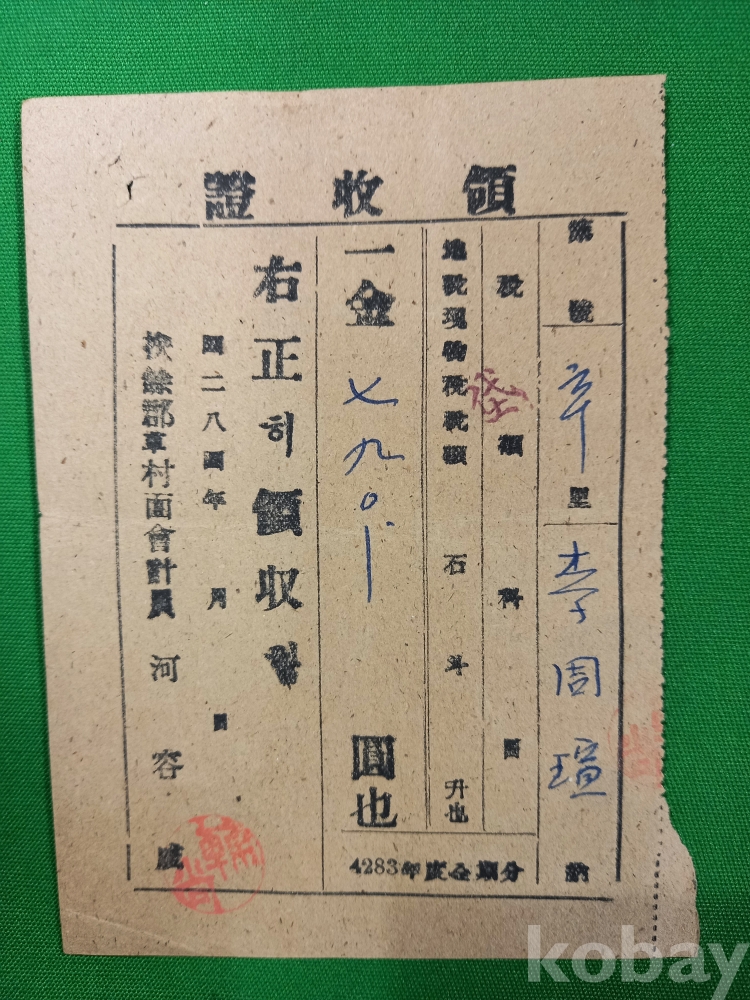 領收證
第 號
里 李周瑄 納
稅額 科目
地稅現物稅稅額 石 斗 升也
4283年度全期分
一金 七九〇 圓也
右正히領收함
四二八四年 月 日
扶餘郡草村面會計員 河容
kobay